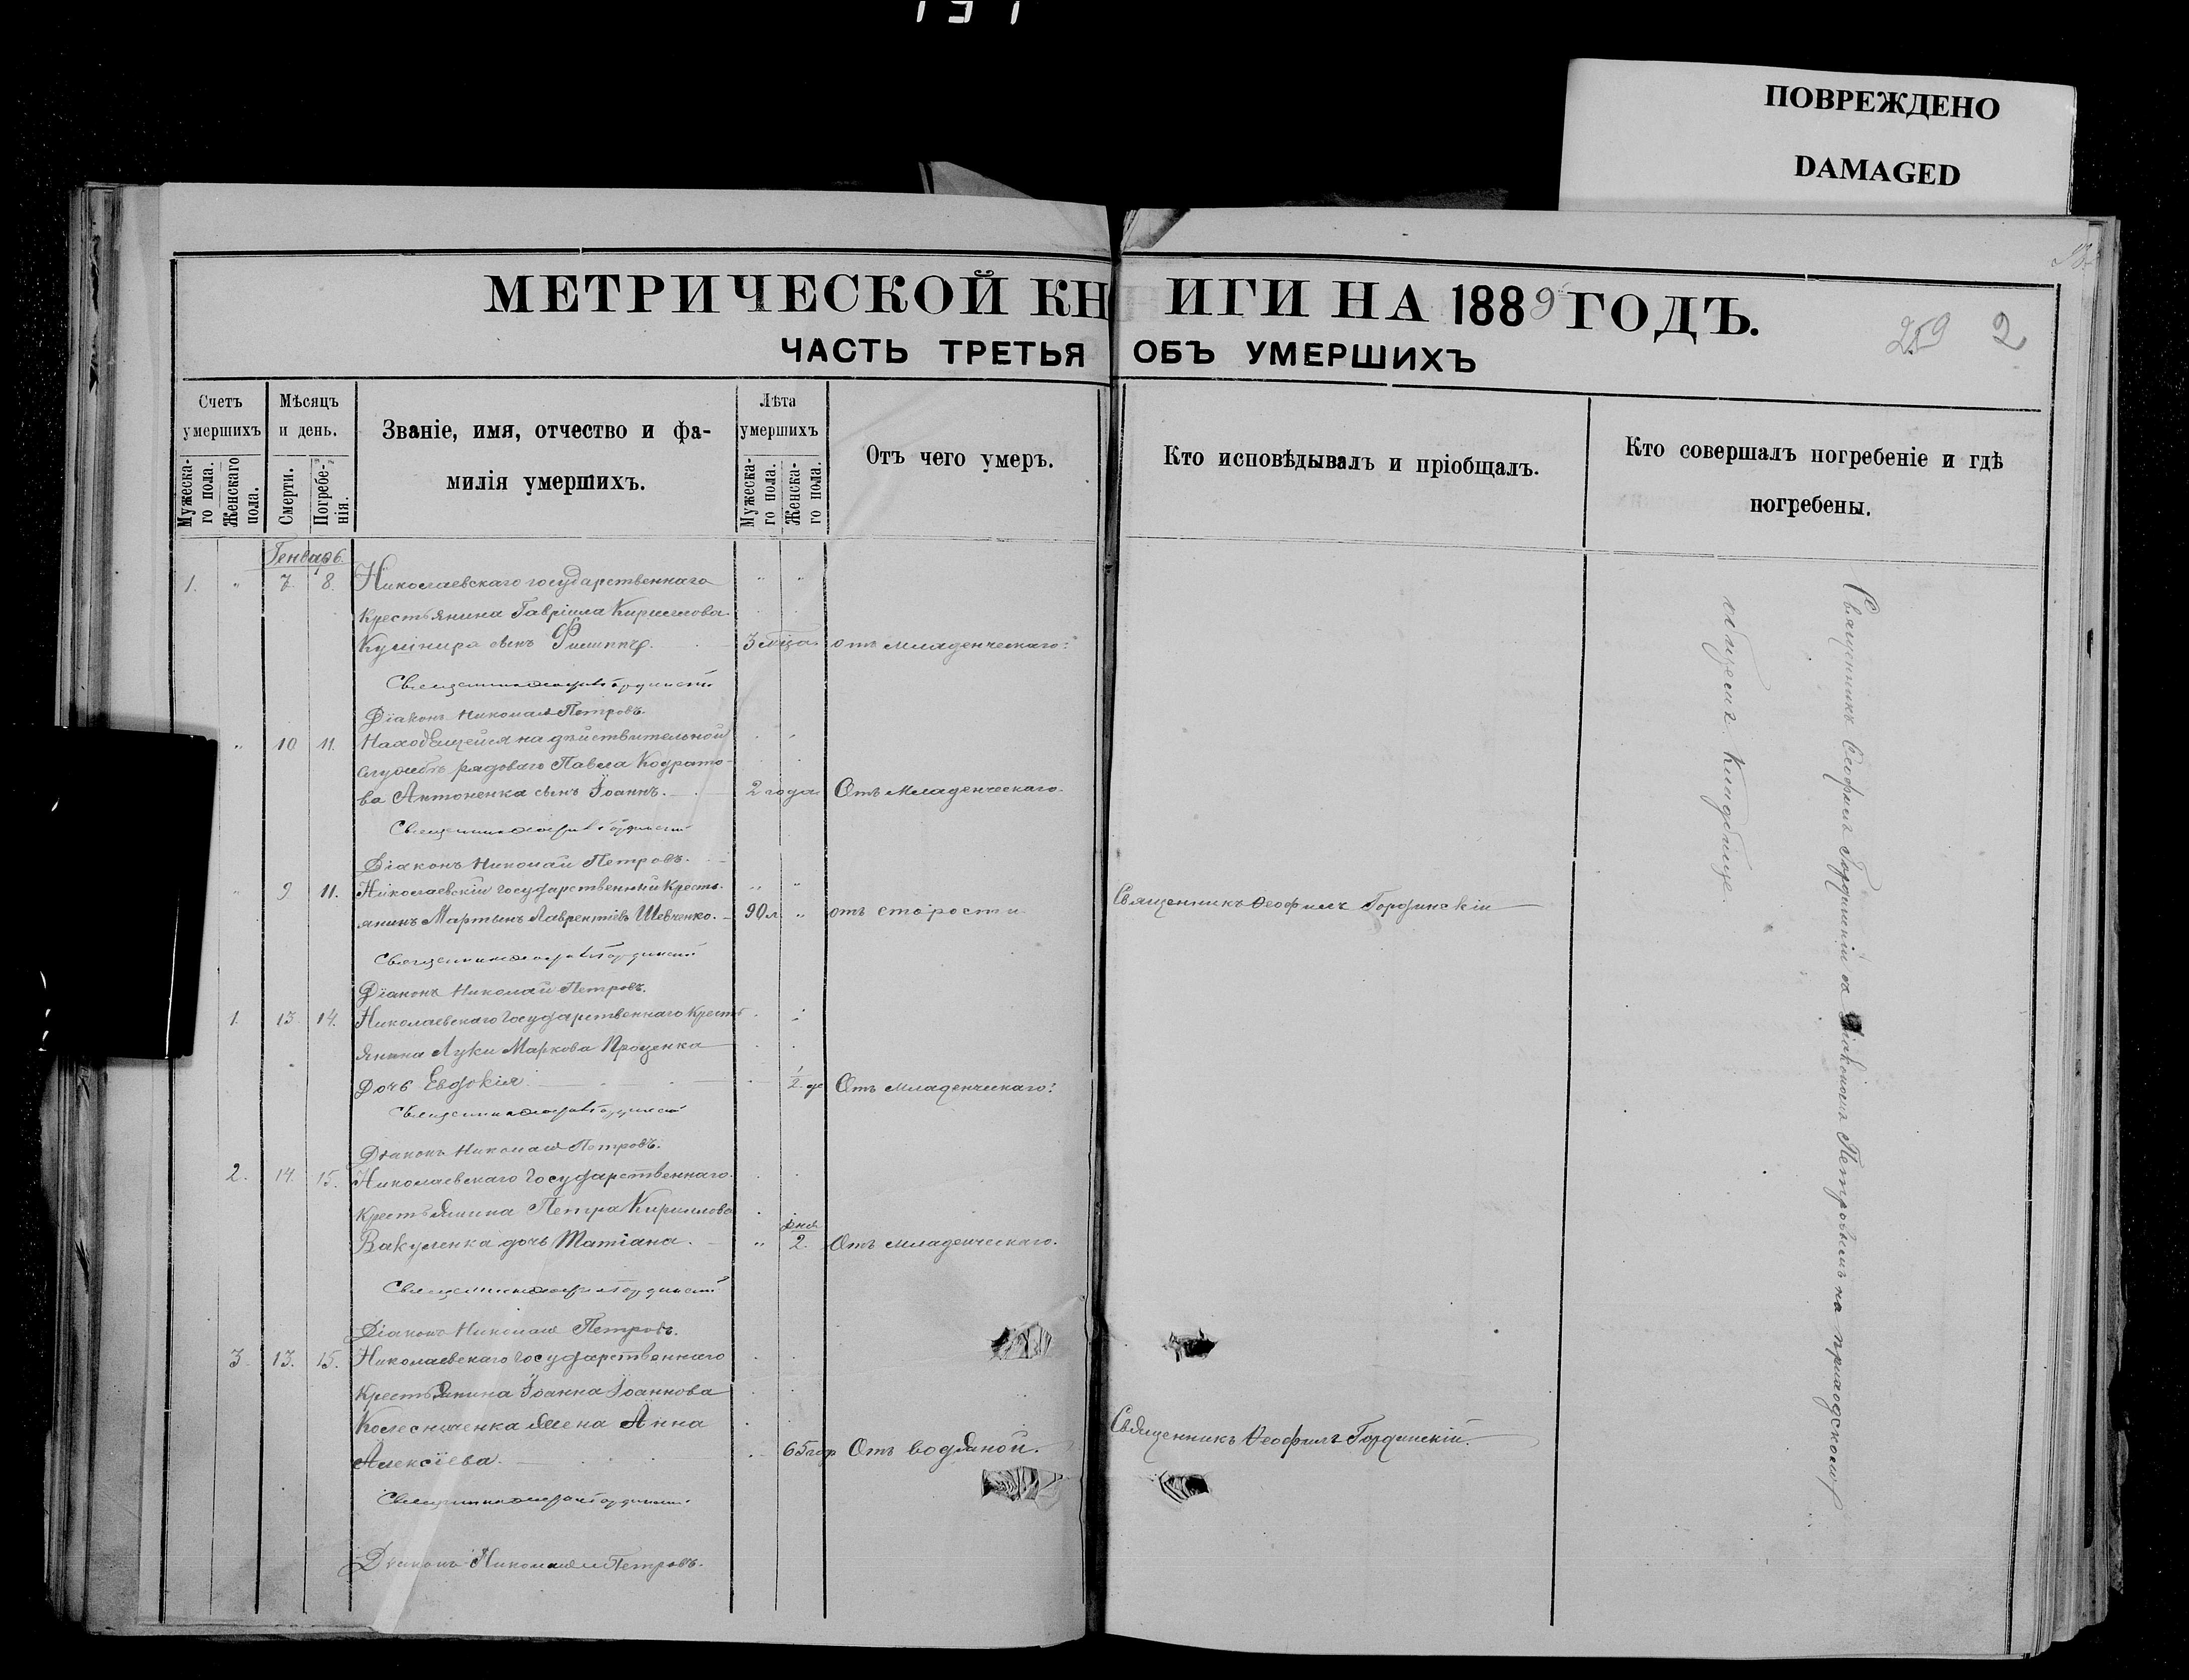 ПОВРЕЖДЕНО
DAMAGED
МЕТРИЧЕСКОЙ КНИГИ НА 1889 ГОДЪ.
259 2
ЧАСТЬ ТРЕТЬЯ ОБЪ УМЕРШИХЪ
Счетъ умершихъ
Мужескаго пола.
Женскаго пола.
Мѣсяцъ и день.
Смерти.
Погребенія.
Званіе, имя, отчество и фа-
милія умершихъ.
Лѣта умершихъ
Мужескаго пола.
Женскаго пола.
Отъ чего умеръ.
Кто исповѣдывалъ и пріобщалъ.
Кто совершалъ погребеніе и гдѣ
погребены.
Генварь
1. " 7. 8. Николаевскаго государственнаго
крестьянина Гавріила Кириллова
Кушнира сынъ Филиппъ. 3 мѣца отъ младенческаго:
Священникъ Ѳеофилъ Гординскій
Діаконъ Николай Петровъ.
" 10 11. Находящейся на дѣйствительной
службѣ рядоваго Павла Кодрато-
ва Антоненка сынъ Іоаннъ. 2 года Отъ Младенческаго.
Священникъ Ѳеофилъ Гординскій
Діаконъ Николай Петровъ.
" 9 11. Николаевскій государственный кресть-
янинъ Мартынъ Лаврентіевъ Шевченко. 90 л. " отъ старости Священникъ Ѳеофилъ Гординскій
Священникъ Ѳеофилъ Гординскій
Діаконъ Николай Петровъ.
1. 13. 14. Николаевскаго Государственнаго Кресть
янина Луки Маркова Проценка
дочь Евдокія 1/2 го Отъ младенческаго:
Священникъ Ѳеофилъ Гординскій
Діаконъ Николай Петровъ.
2. 14. 15. Николаевскаго Государственнаго
крестьянина Петра Кириллова
Вакуленка дочь Татіана. " 2 дня Отъ младенческаго.
Священникъ Ѳеофилъ Гординскій
Діаконъ Николай Петровъ.
3. 13. 15. Николаевскаго государственнаго
крестьянина Іоанна Іоаннова
Колесниченка жена Анна
Алексіева. 65 год Отъ водяной. Священникъ Ѳеофилъ Гординскій.
Священникъ Ѳеофилъ Гординскій
Діаконъ Николай Петровъ.
Священникъ Ѳеофилъ Гординскій съ Діакономъ Петровымъ на приходскомъ
общемъ кладбище.